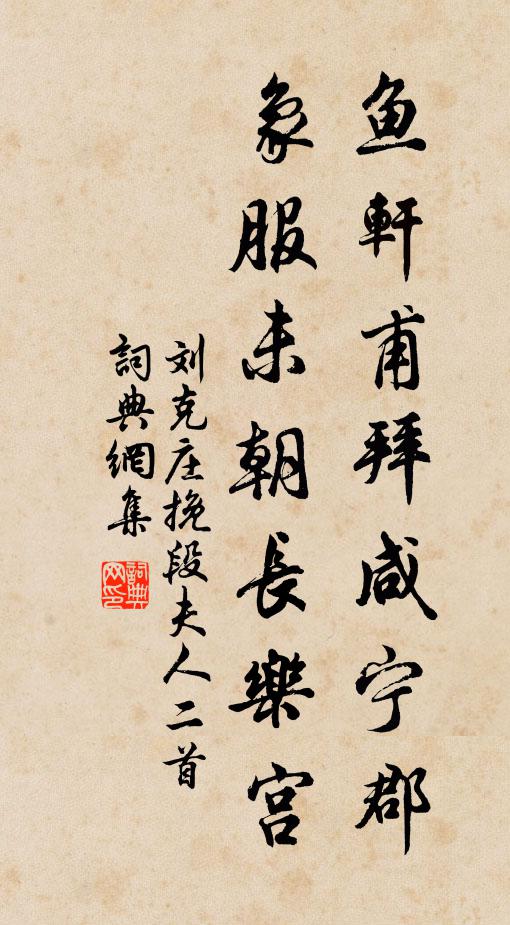 鱼軒甫拜咸宁郡
象服未朝長樂宫
刘克庄挽段夫人二首
詞典網集
詞典网印